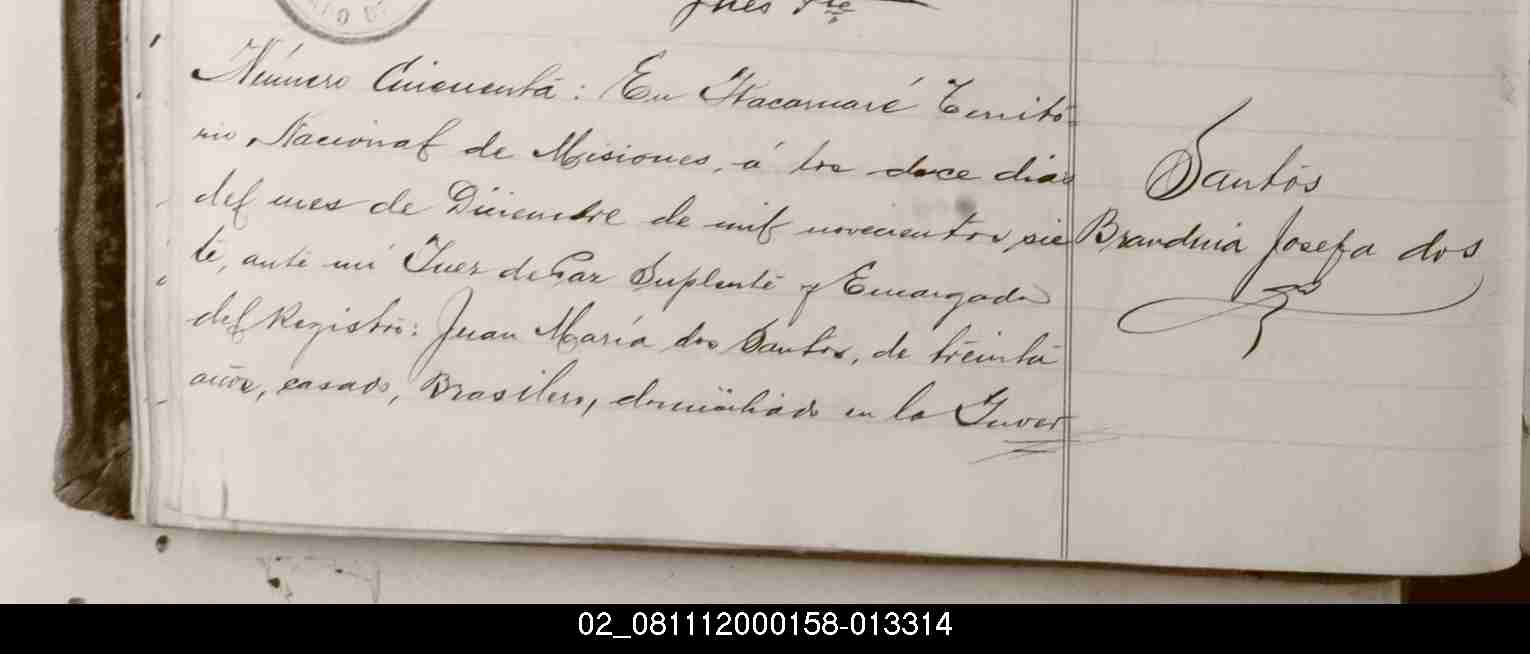 Juez Ste
Número Cincuenta: En Itacaruaré Territó-
rio Nacional de Misiones, á los doce dias
del mes de Diciembre de mil novecientos sie
te, ante mi Juez de Paz Suplente y Encargado
del Registro: Juan María dos Santos, de treinta
años, casado, Brasilero, domiciliado en la Juver
Santos
Branduia Josefa dos
02_081112000158-013314